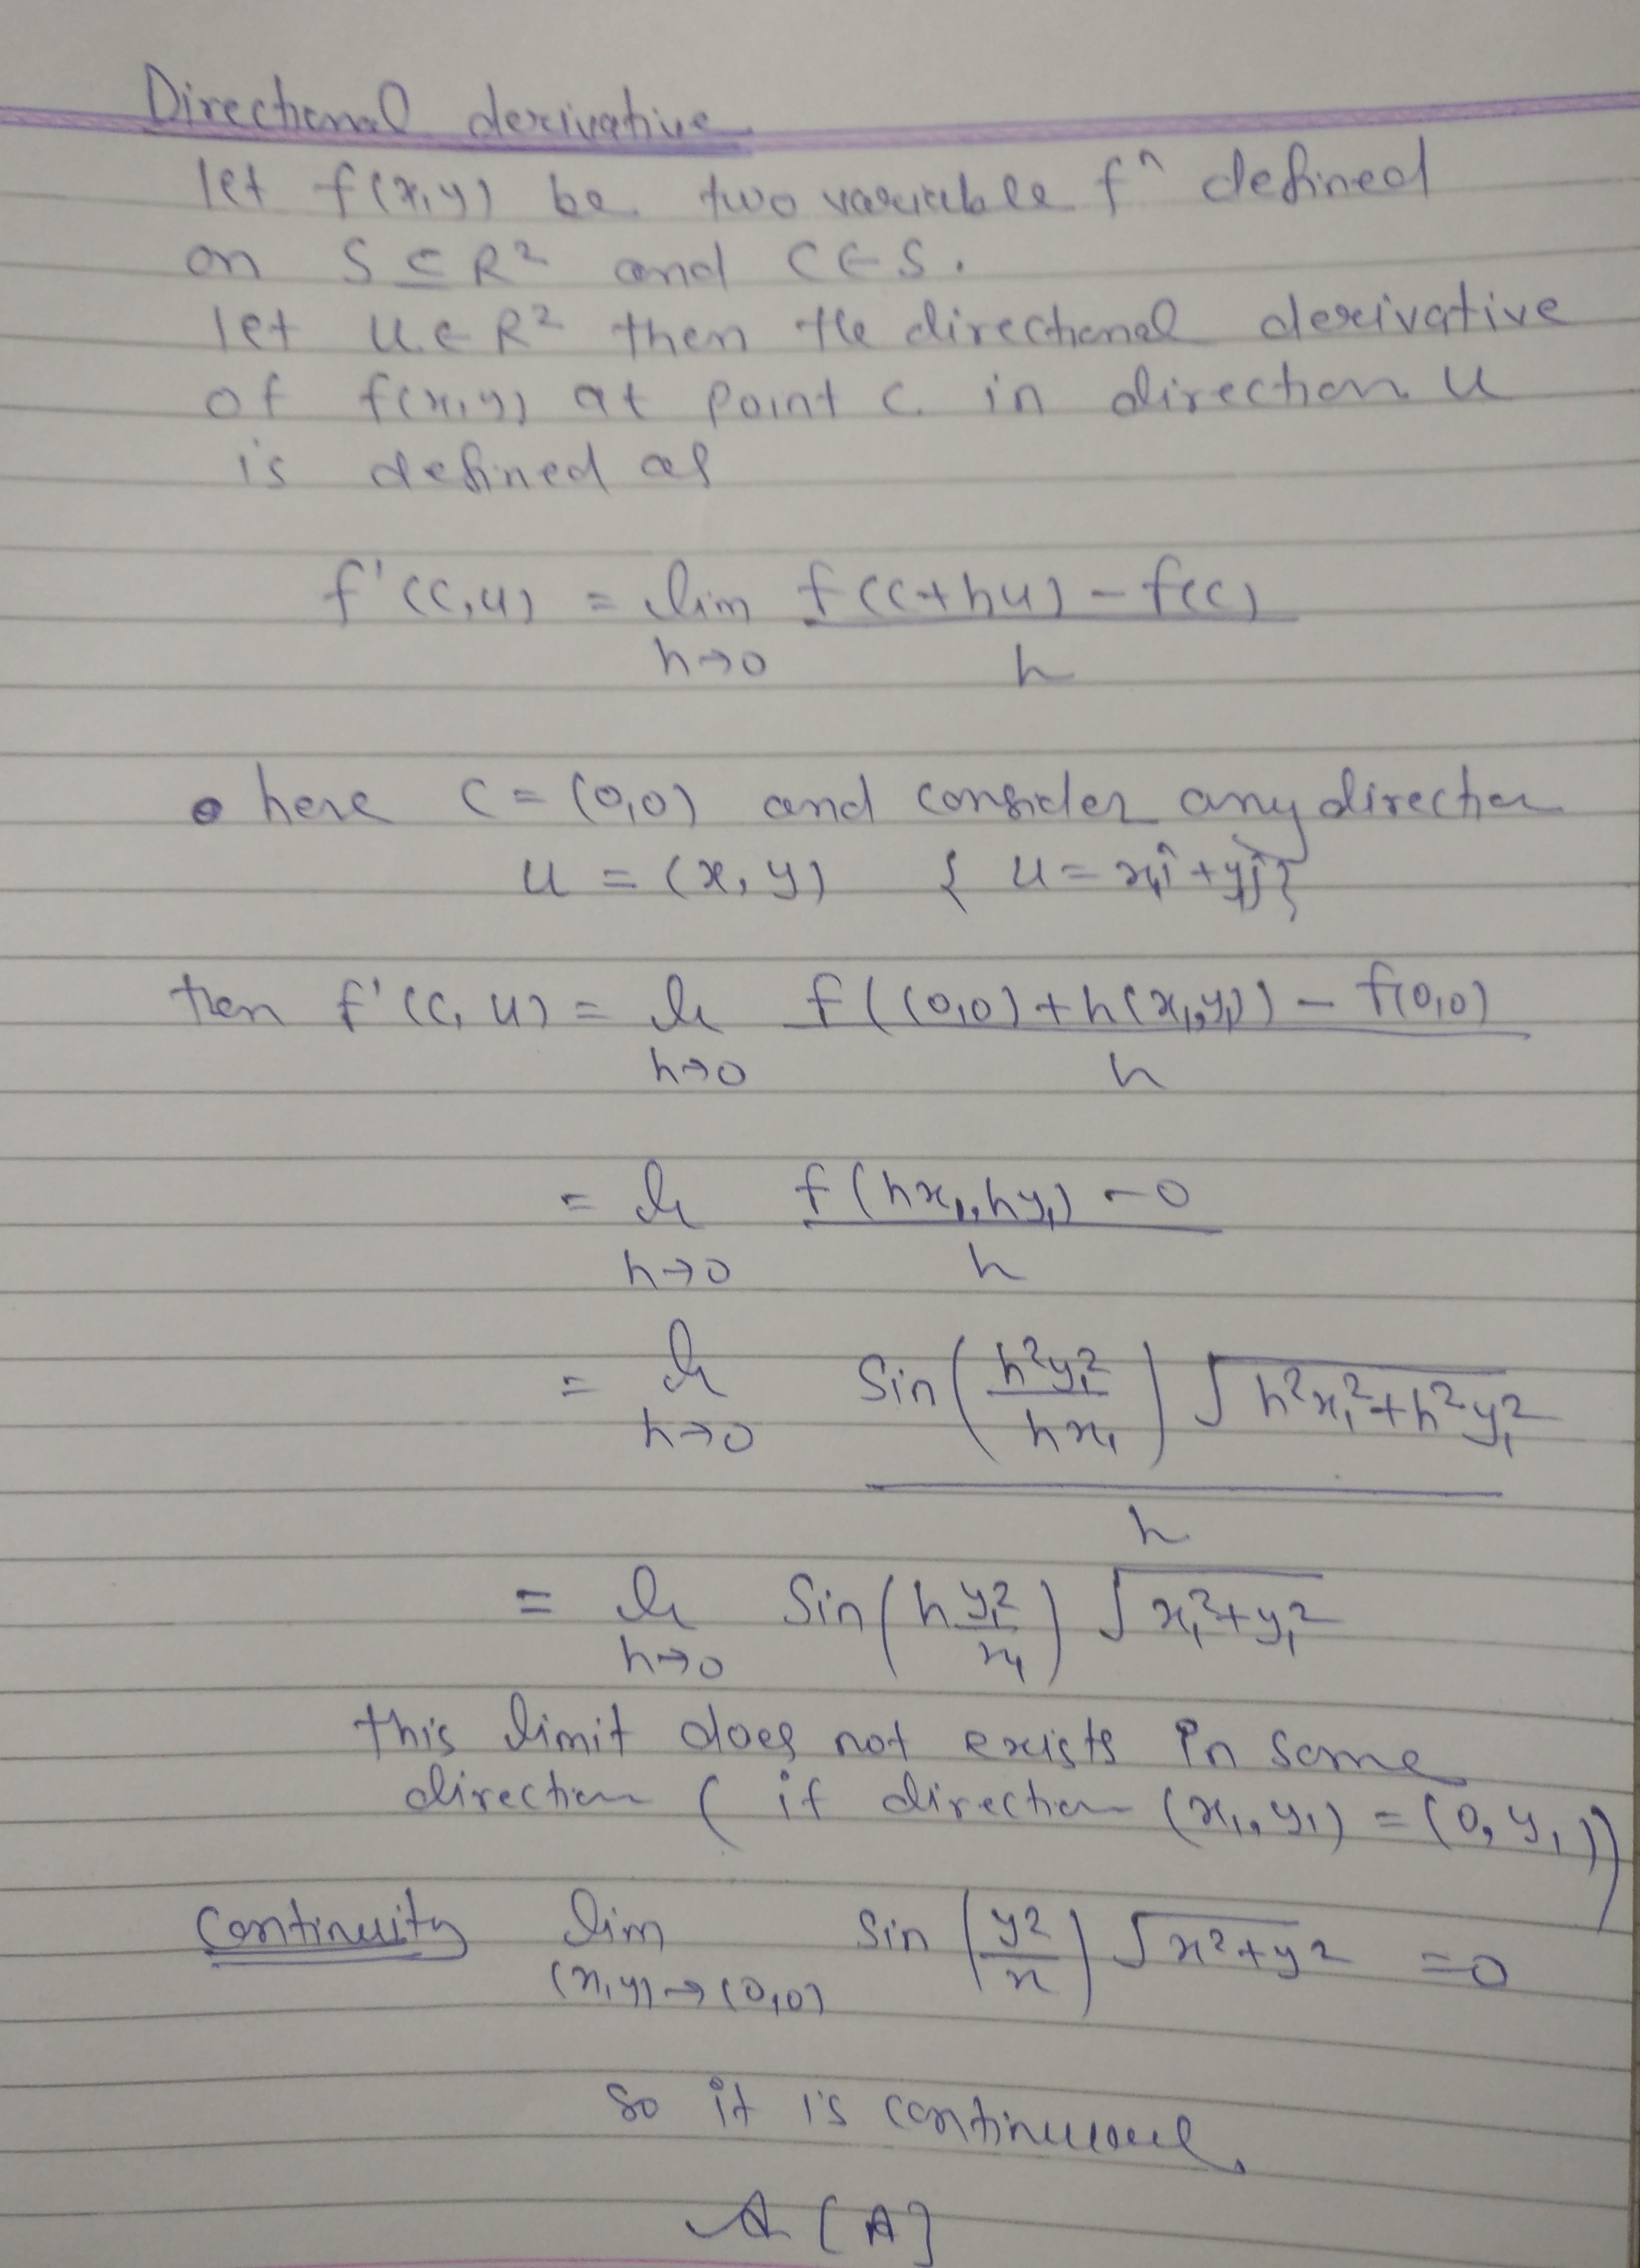 Directional derivative
let f(x,y) be two variable fⁿ defined
on S ⊆ R² and C ∈ S.
let u ∈ R² then the directional derivative
of f(x,y) at point c in direction u
is defined as
f'(c,u) = lim f(c+hu) - f(c)
h→0 h
• here C = (0,0) and consider any direction
u = (x, y) { u = x₁î + y₁ĵ }
then f'(c, u) = lt f((0,0) + h(x₁,y₁)) - f(0,0)
h→0 h
= lt f(hx₁, hy₁) - 0
h→0 h
= lt Sin(h²y₁²/hx₁) √h²x₁²+h²y₁²
h→0 h
= lt Sin(h y₁²/x₁) √x₁²+y₁²
h→0
this limit does not exists in some
direction ( if direction (x₁, y₁) = (0, y₁))
Continuity lim Sin(y²/x) √x²+y² = 0
(x,y)→(0,0)
so it is continuous.
[A]